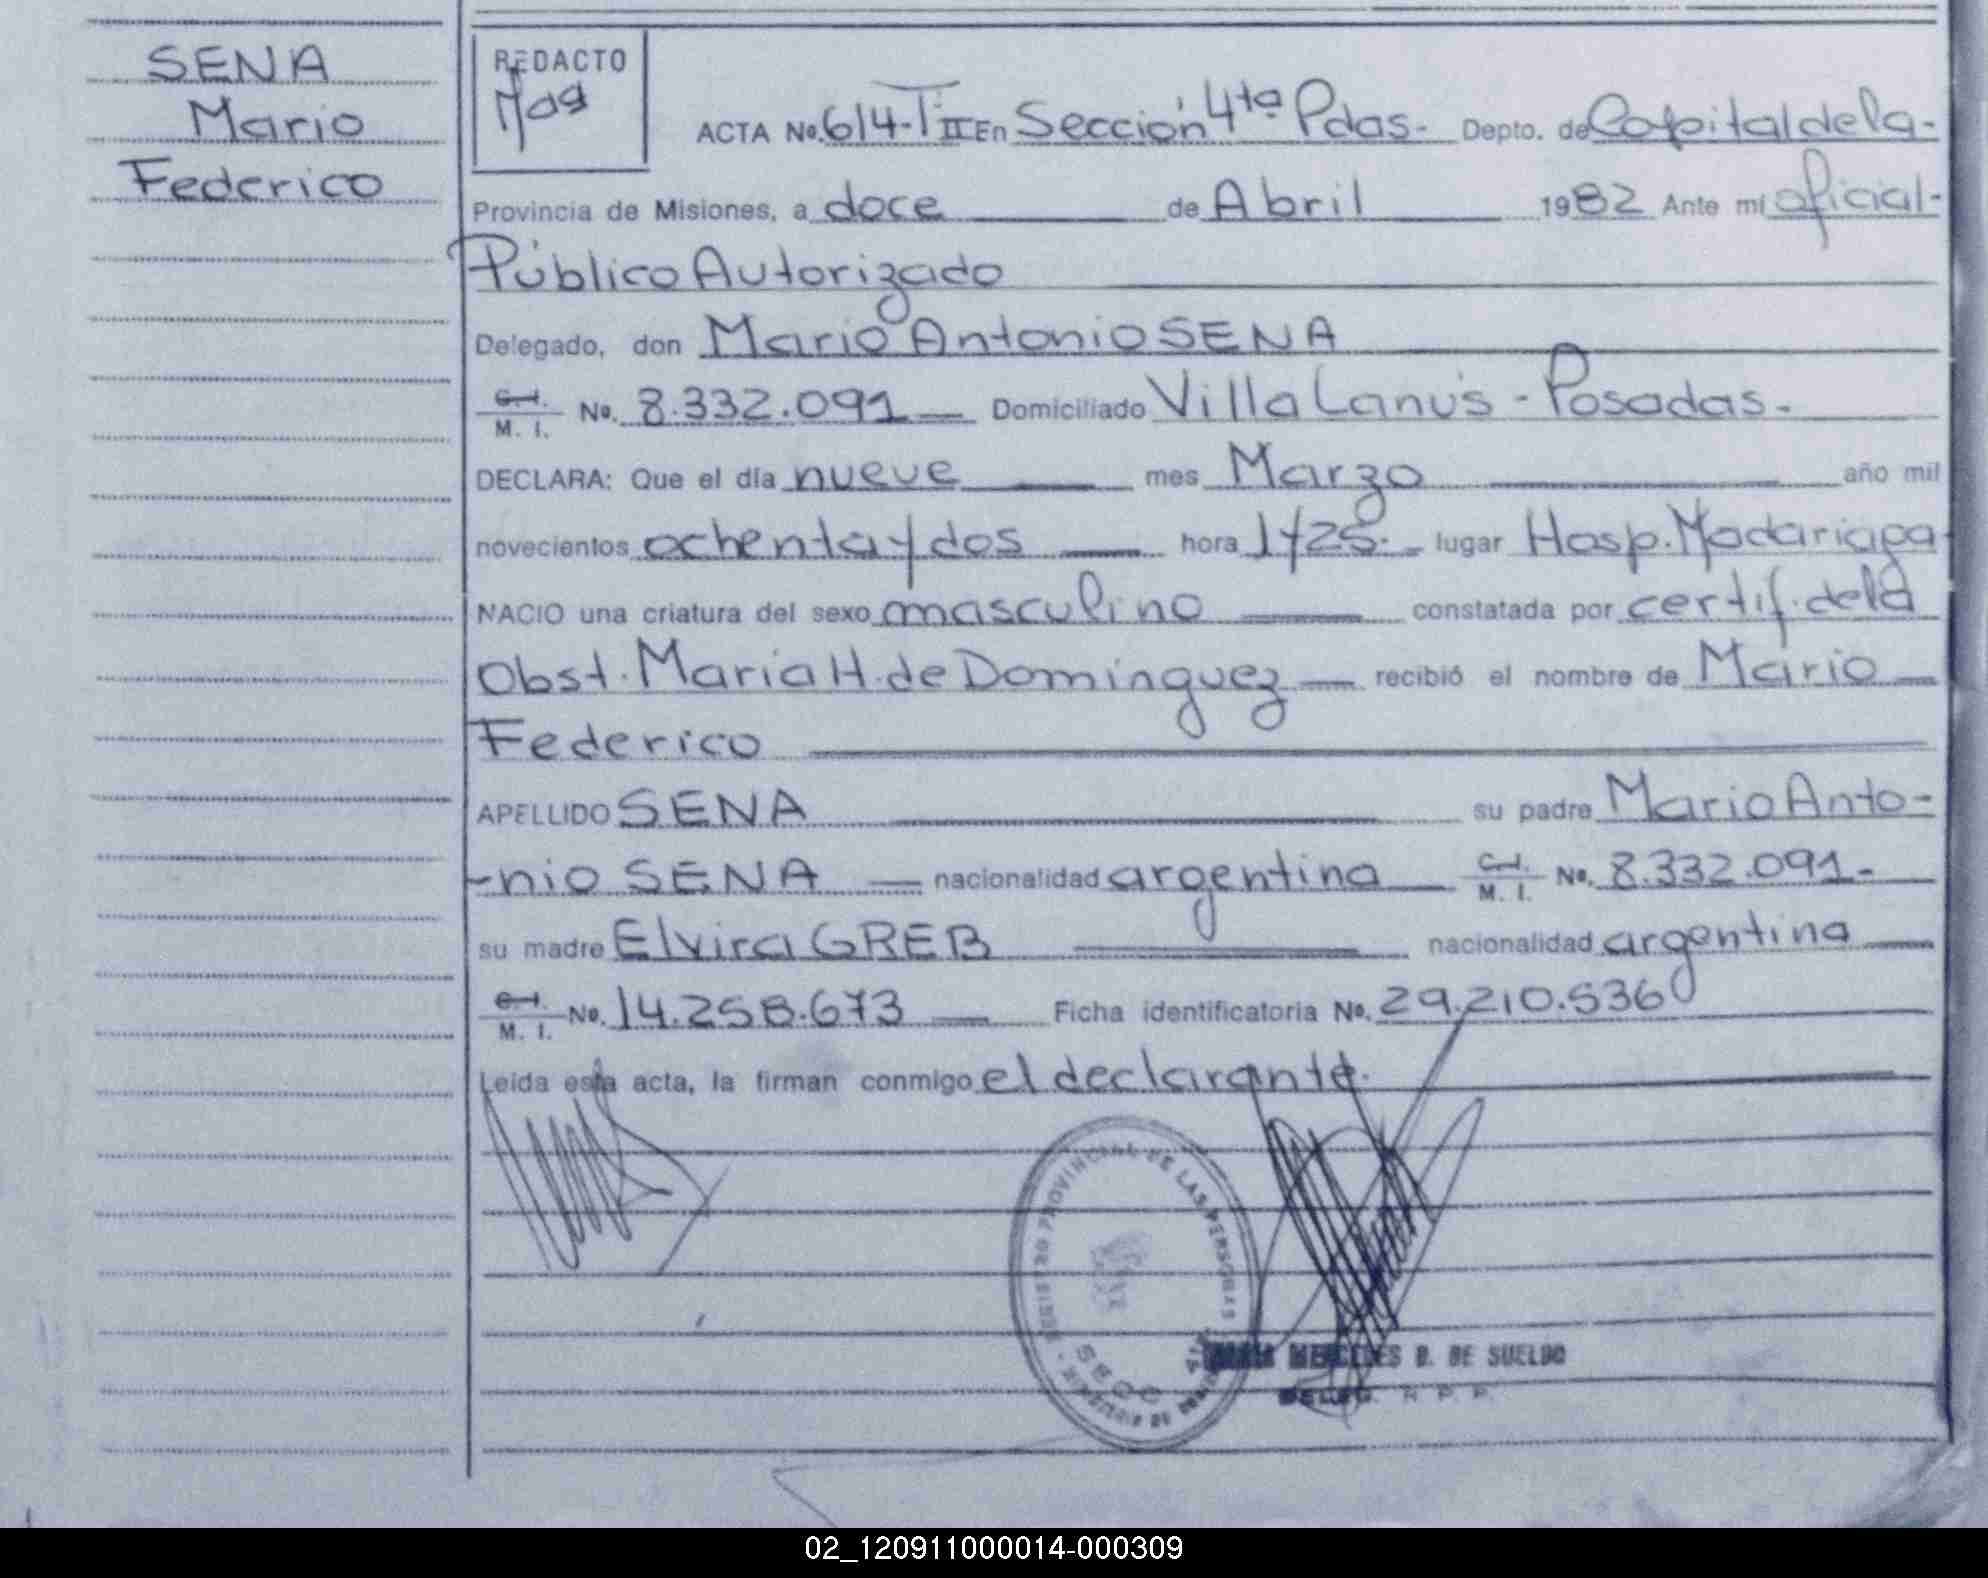 SENA
Mario
Federico
REDACTO
ACTA No. 614-T II En Sección 4ta Pdas.- Depto. de Capital de la-
Provincia de Misiones, a doce de Abril 1982 Ante mi oficial-
Público Autorizado
Delegado, don Mario Antonio SENA
C. I. M. I. No. 8.332.091 Domiciliado Villa Lanús - Posadas.-
DECLARA: Que el día nueve mes Marzo año mil
novecientos ochenta y dos hora 1725.- lugar Hosp. Madariaga
NACIO una criatura del sexo masculino constatada por certif. de la
Obst. María H. de Domínguez recibió el nombre de Mario
Federico
APELLIDO SENA su padre Mario Anto-
-nio SENA nacionalidad argentina C. I. M. I. No. 8.332.091.-
su madre Elvira GREB nacionalidad argentina
C. I. M. I. No. 14.258.673 Ficha identificatoria No. 29.210.536
Leída esta acta, la firman conmigo el declarante.
PROVINCIAL DE LAS PERSONAS
MERCEDES B. DE SUELDO
DELEG. R. P. P.
02_120911000014-000309